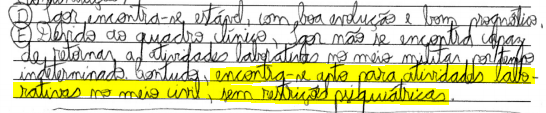 D Igor encontra-se estável, com boa evolução e bom prognóstico.
E Devido ao quadro clínico, Igor não se encontra capaz
de retornar a atividades laborativas no meio militar, por tempo
indeterminado. Contudo, encontra-se apto para atividades labo-
rativas no meio civil, sem restrições psiquiátricas.